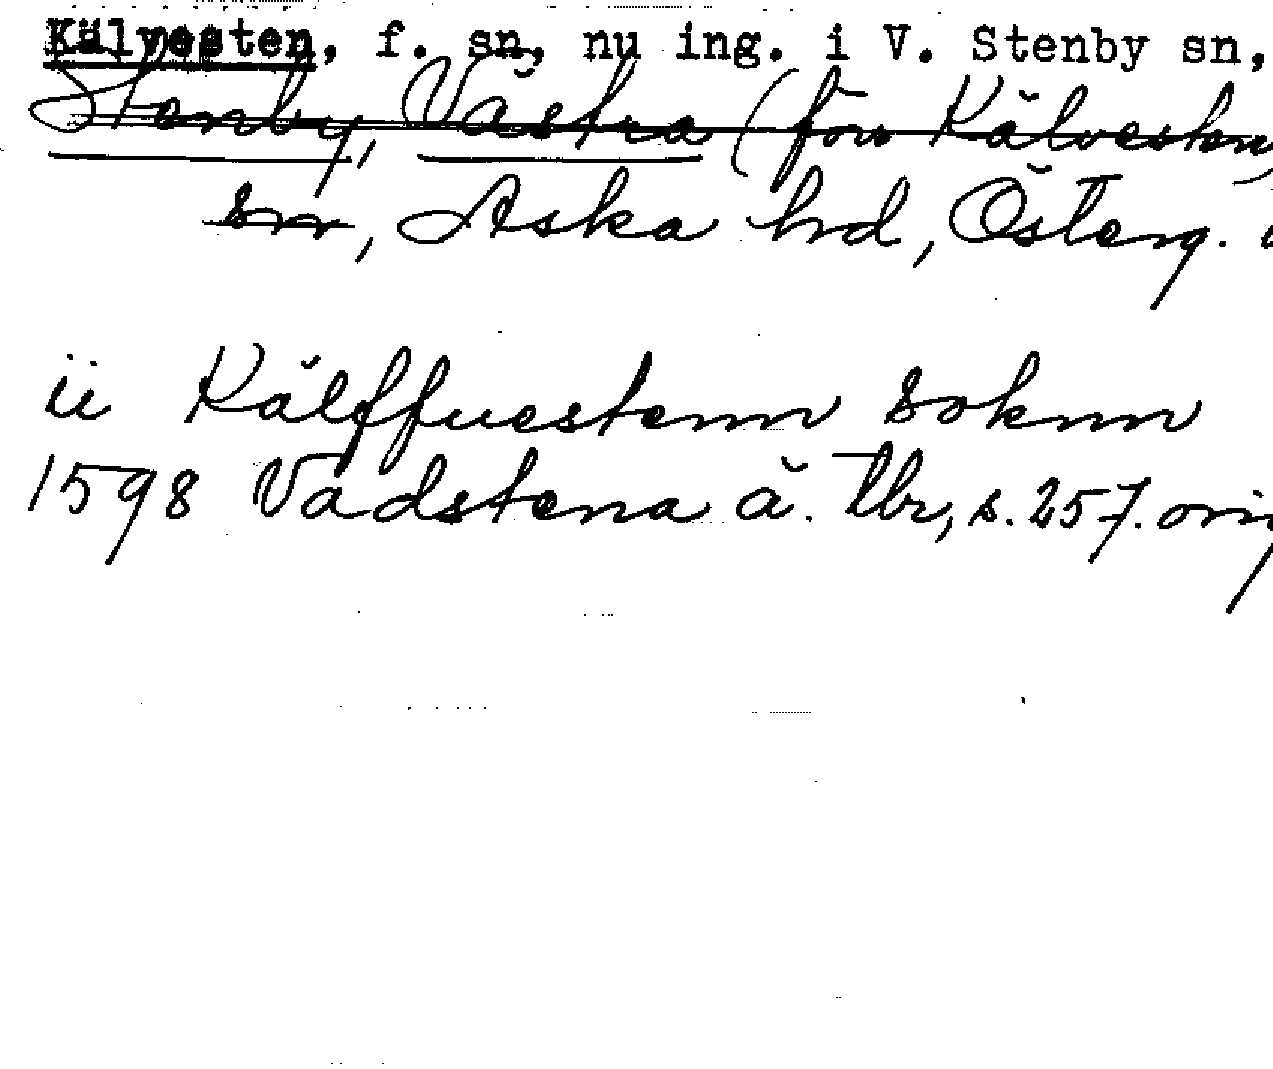 Kälvesten, f. sn, nu ing. i V. Stenby sn,
Stenby, Västra (förr Kälvesten)
sn, Aska hd, Österg.
ii Kälffuestenn soknn
1598 Vadstena ä. tbr, s. 257. orig